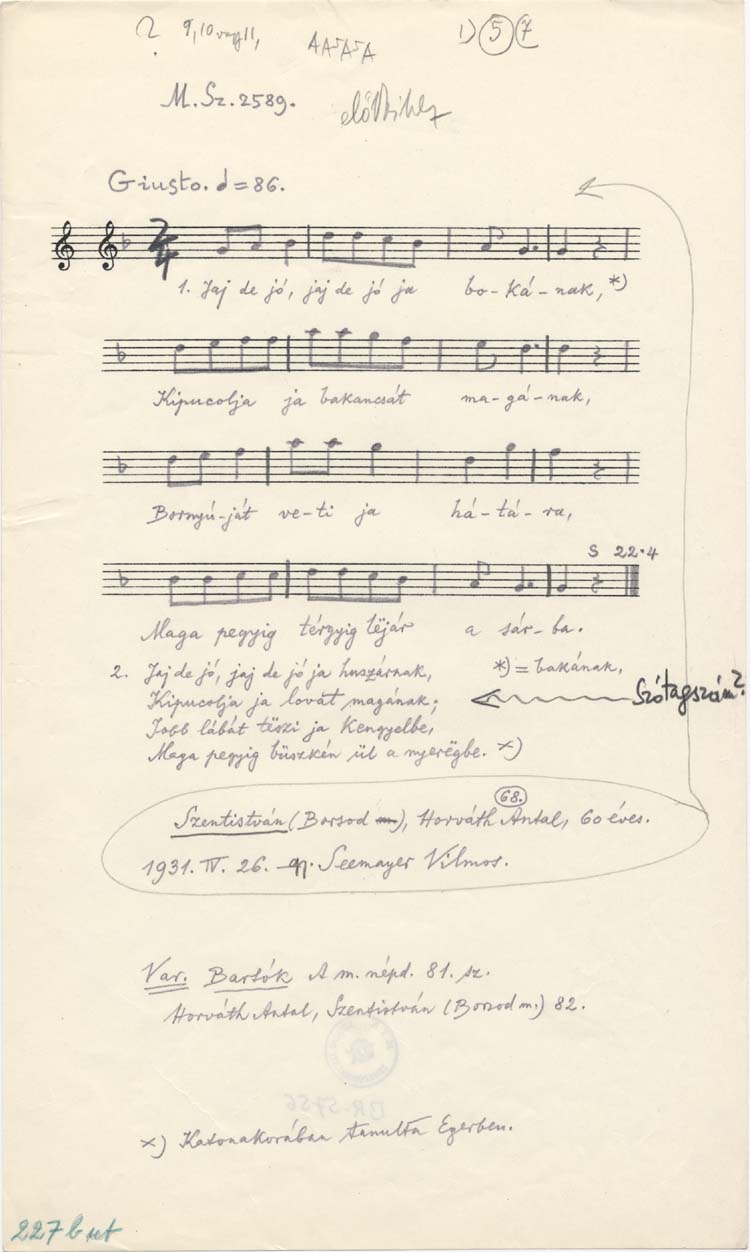 ? 9, 10 vagy 11,
A A⁵ A⁵ A
1) 5 7
M. Sz. 2589.
Giusto. = 86.
2/4
1. Jaj de jó, jaj de jó ja bo-ká-nak, *)
Kipucolja ja bakancsát ma-gá-nak,
Bornyú-ját ve-ti ja há-tá-ra,
S 22.4
Maga pegyig térgyig lëjár a sár-ba.
2. Jaj de jó, jaj de jó ja huszárnak, *) = bakának,
Kipucolja ja lovát magának; Szótagszám?
Jobb lábát tëszi ja Kengyelbe,
Maga pegyig büszkén ül a nyerëgbe. x)
68.
Szentistván (Borsod m), Horváth Antal, 60 éves.
1931. IV. 26. Seemayer Vilmos.
Var. Bartók A m. népd. 81. sz.
Horváth Antal, Szentistván (Borsod m.) 82.
BR-5756
x) Katonakorában tanulta Egerben.
227 b